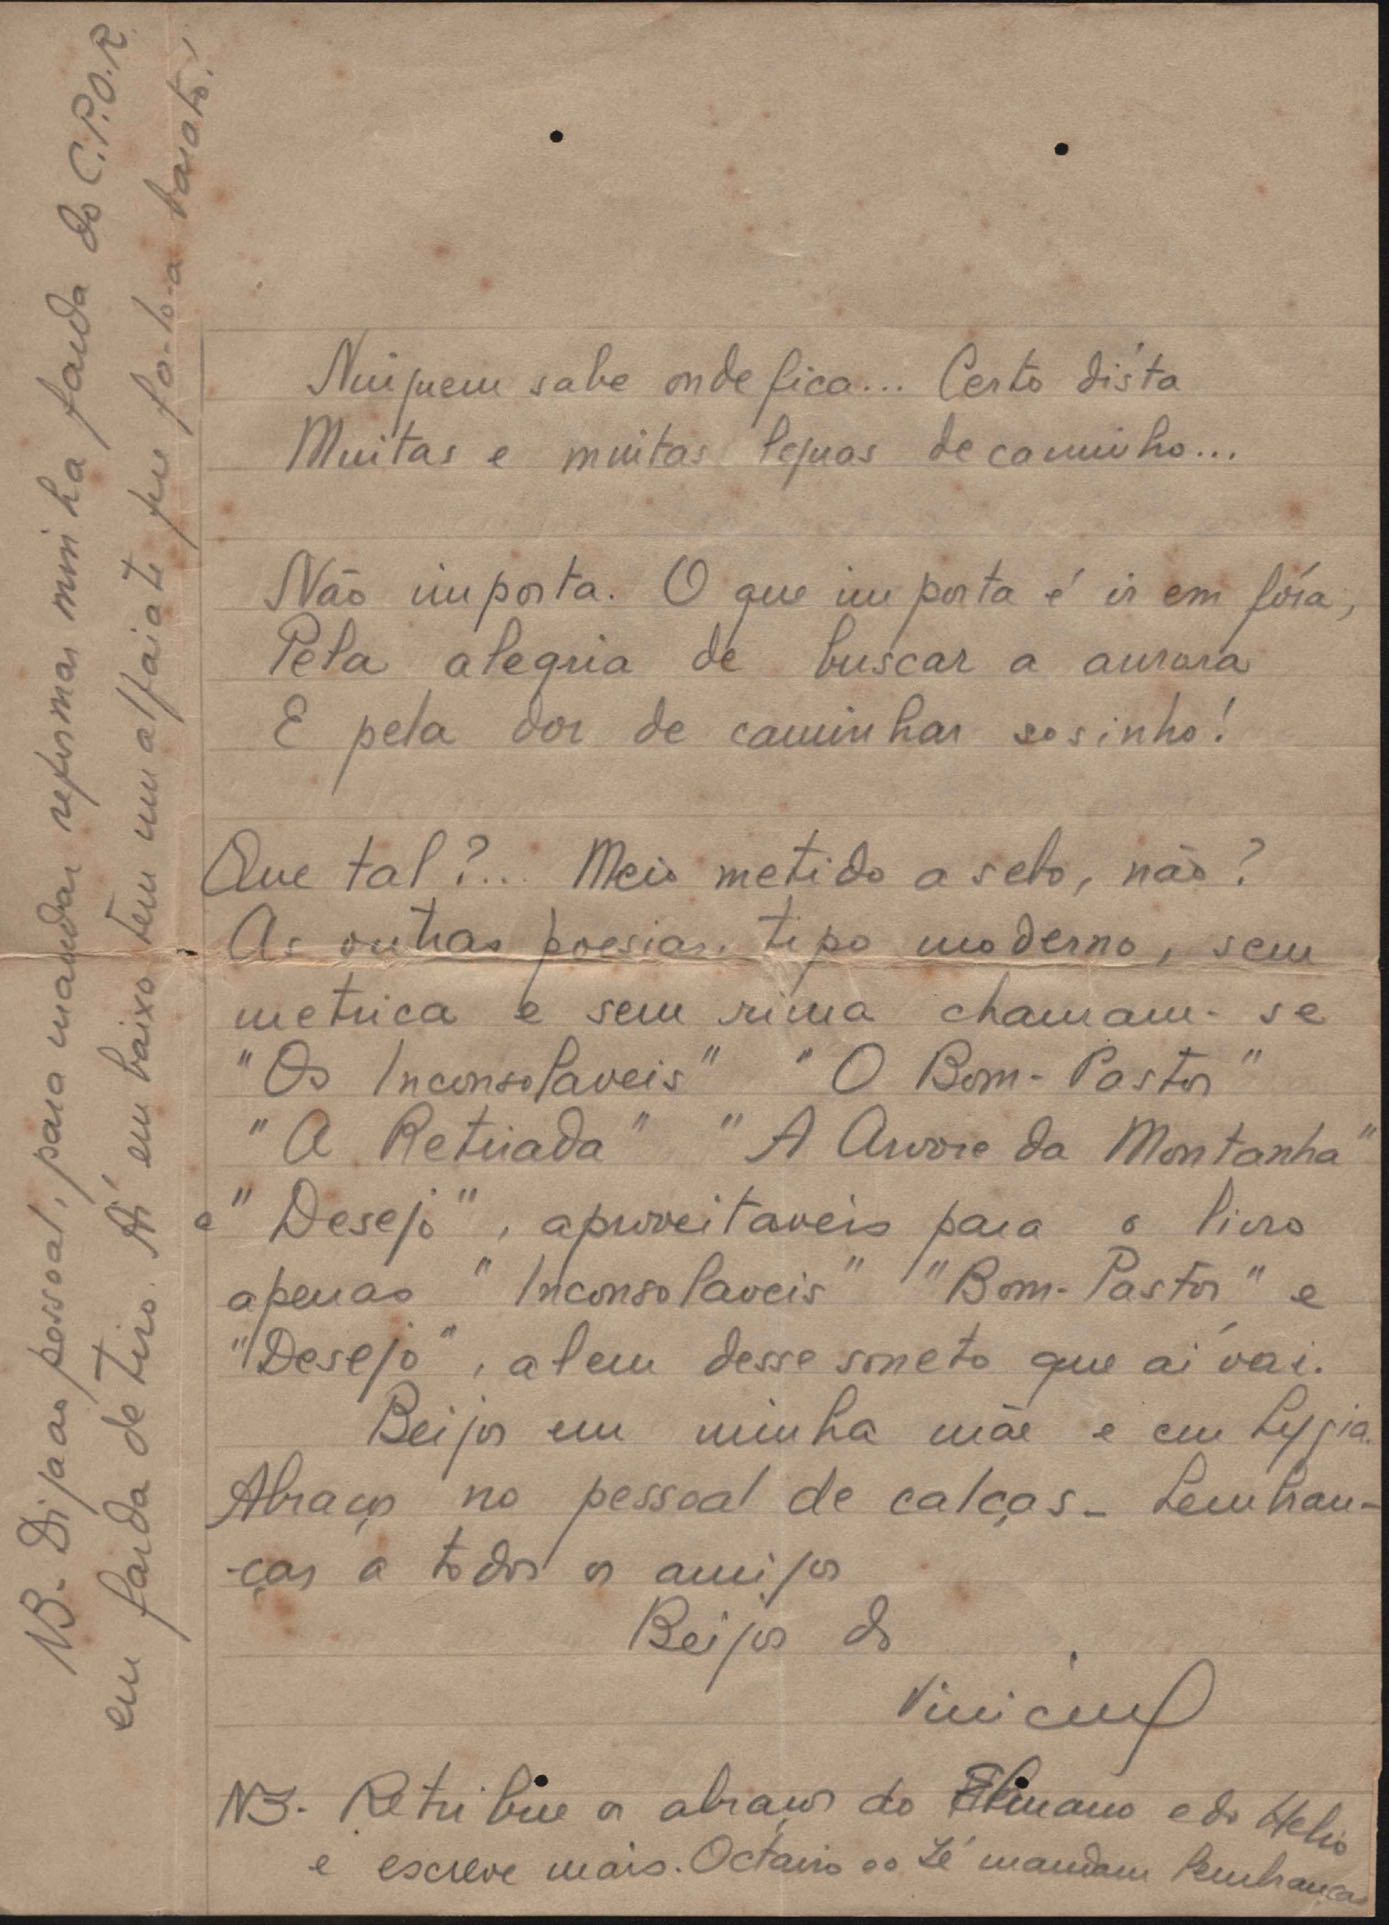 Ninguem sabe onde fica... Certo dista
Muitas e muitas leguas de caminho...
Não importa. O que importa é ir em fóra,
Pela alegria de buscar a aurora
E pela dor de caminhar sosinho!
Que tal?... Meio metido a sebo, não?
As outras poesias, tipo moderno, sem
metrica e sem rima chamam-se
"Os Inconsolaveis" "O Bom-Pastor"
"A Retirada" "A Arvore da Montanha"
e "Desejo", aproveitaveis para o livro
apenas "Inconsolaveis" "Bom-Pastor" e
"Desejo", alem desse soneto que aí vai.
Beijos em minha mãe e em Lygia.
Abraços no pessoal de calças - Lembran-
-ças a todos os amigos
Beijos do
Vinicius
NB- Retribue os abraços do e do Helio
e escreve mais. Octavio e o Zé mandam lembranças
NB- Diga ao pessoal, para mandar reformar minha farda do C.P.O.R.
em farda de tiro. Aí em baixo tem um alfaiate que fa-lo-a barato!